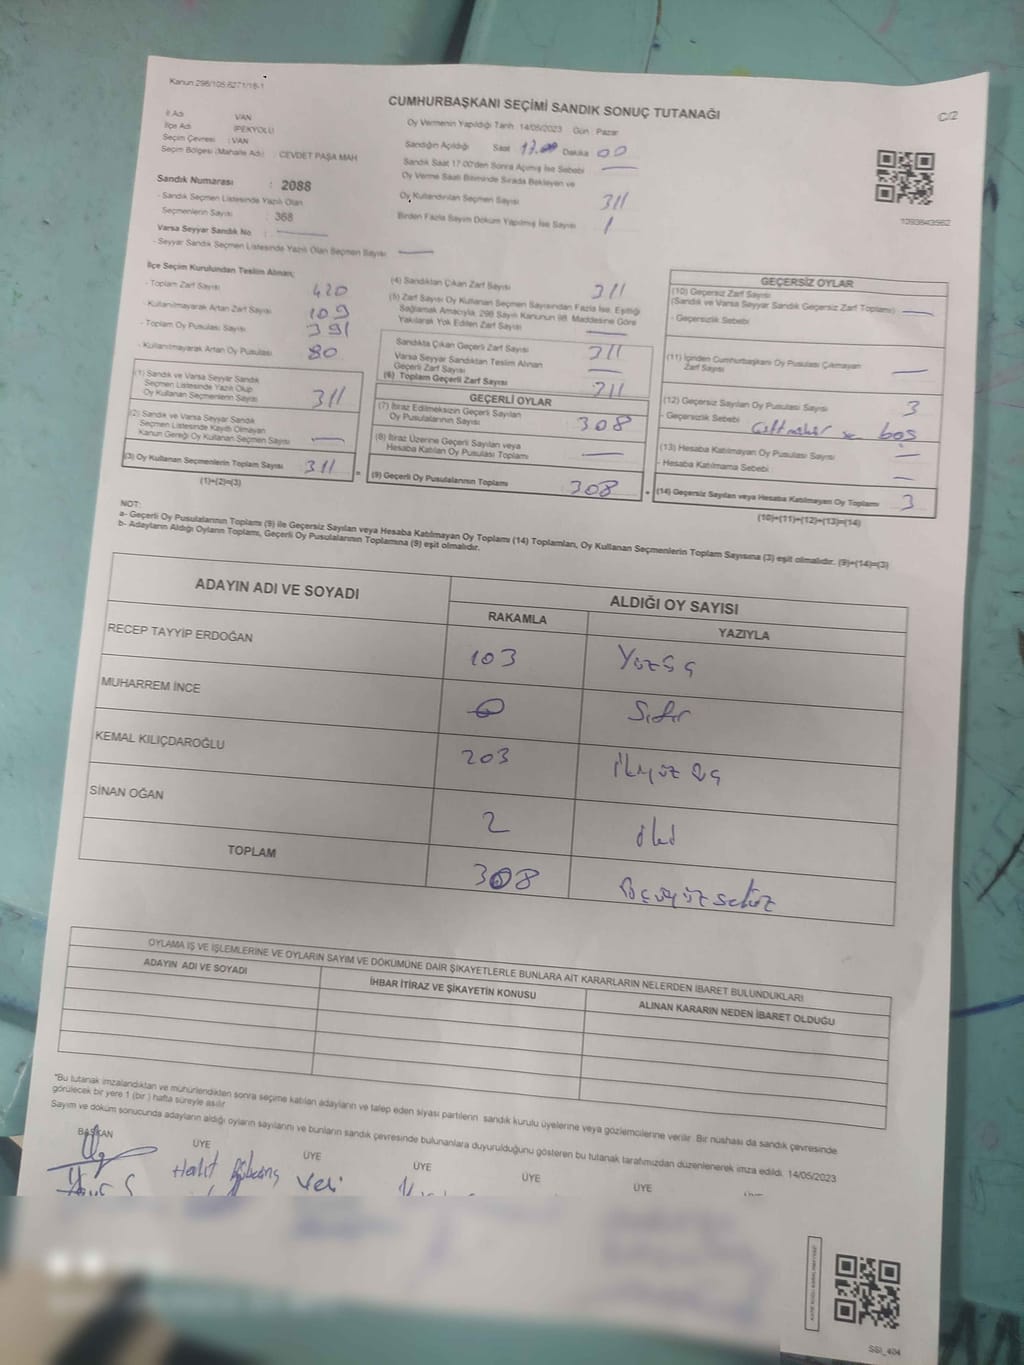 Kanun 298/105;6271/18-1
CUMHURBAŞKANI SEÇİMİ SANDIK SONUÇ TUTANAĞI
C/2
İl Adı : VAN
İlçe Adı : İPEKYOLU
Seçim Çevresi : VAN
Seçim Bölgesi (Mahalle Adı) : CEVDET PAŞA MAH
Sandık Numarası : 2088
- Sandık Seçmen Listesinde Yazılı Olan
Seçmenlerin Sayısı : 368
Varsa Seyyar Sandık No :
- Seyyar Sandık Seçmen Listesinde Yazılı Olan Seçmen Sayısı :
Oy Vermenin Yapıldığı Tarih 14/05/2023 Gün : Pazar
Sandığın Açıldığı Saat 17.00 Dakika 00
Sandık Saat 17:00'den Sonra Açılmış İse Sebebi
Oy Verme Saati Bitiminde Sırada Bekleyen ve
Oy Kullandırılan Seçmen Sayısı 311
Birden Fazla Sayım Döküm Yapılmış İse Sayısı 1
1093643562
İlçe Seçim Kurulundan Teslim Alınan;
- Toplam Zarf Sayısı 420
- Kullanılmayarak Artan Zarf Sayısı 109
- Toplam Oy Pusulası Sayısı 391
- Kullanılmayarak Artan Oy Pusulası 80
(1) Sandık ve Varsa Seyyar Sandık
Seçmen Listesinde Yazılı Olup
Oy Kullanan Seçmenlerin Sayısı 311
(2) Sandık ve Varsa Seyyar Sandık
Seçmen Listesinde Kayıtlı Olmayan
Kanun Gereği Oy Kullanan Seçmen Sayısı
(3) Oy Kullanan Seçmenlerin Toplam Sayısı 311 =
(1)+(2)=(3)
(4) Sandıktan Çıkan Zarf Sayısı 311
(5) Zarf Sayısı Oy Kullanan Seçmen Sayısından Fazla İse, Eşitliği
Sağlamak Amacıyla, 298 Sayılı Kanunun 98. Maddesine Göre
Yakılarak Yok Edilen Zarf Sayısı
Sandıkta Çıkan Geçerli Zarf Sayısı 311
Varsa Seyyar Sandıktan Teslim Alınan
Geçerli Zarf Sayısı
(6) Toplam Geçerli Zarf Sayısı 311
GEÇERLİ OYLAR
(7) İtiraz Edilmeksizin Geçerli Sayılan
Oy Pusulalarının Sayısı 308
(8) İtiraz Üzerine Geçerli Sayılan veya
Hesaba Katılan Oy Pusulası Toplamı
(9) Geçerli Oy Pusulalarının Toplamı 308 +
GEÇERSİZ OYLAR
(10) Geçersiz Zarf Sayısı
(Sandık ve Varsa Seyyar Sandık Geçersiz Zarf Toplamı)
- Geçersizlik Sebebi
(11) İçinden Cumhurbaşkanı Oy Pusulası Çıkmayan
Zarf Sayısı
(12) Geçersiz Sayılan Oy Pusulası Sayısı 3
- Geçersizlik Sebebi boş
(13) Hesaba Katılmayan Oy Pusulası Sayısı
- Hesaba Katılmama Sebebi
(14) Geçersiz Sayılan veya Hesaba Katılmayan Oy Toplamı 3
(10)+(11)+(12)+(13)=(14)
NOT:
a- Geçerli Oy Pusulalarının Toplamı (9) ile Geçersiz Sayılan veya Hesaba Katılmayan Oy Toplamı (14) Toplamları, Oy Kullanan Seçmenlerin Toplam Sayısına (3) eşit olmalıdır. (9)+(14)=(3)
b- Adayların Aldığı Oyların Toplamı, Geçerli Oy Pusulalarının Toplamına (9) eşit olmalıdır.
ADAYIN ADI VE SOYADI
ALDIĞI OY SAYISI
RAKAMLA YAZIYLA
RECEP TAYYİP ERDOĞAN 103 Yüzüç
MUHARREM İNCE 0 Sıfır
KEMAL KILIÇDAROĞLU 203 ikiyüz üç
SİNAN OĞAN 2 iki
TOPLAM 308 üçyüzsekiz
OYLAMA İŞ VE İŞLEMLERİNE VE OYLARIN SAYIM VE DÖKÜMÜNE DAİR ŞİKAYETLERLE BUNLARA AİT KARARLARIN NELERDEN İBARET BULUNDUKLARI
ADAYIN ADI VE SOYADI
İHBAR İTİRAZ VE ŞİKAYETİN KONUSU
ALINAN KARARIN NEDEN İBARET OLDUĞU
*Bu tutanak imzalandıktan ve mühürlendikten sonra seçime katılan adayların ve talep eden siyasi partilerin sandık kurulu üyelerine veya gözlemcilerine verilir. Bir nüshası da sandık çevresinde
görülecek bir yere 1 (bir ) hafta süreyle asılır
Sayım ve döküm sonucunda adayların aldığı oyların sayılarını ve bunların sandık çevresinde bulunanlara duyurulduğunu gösteren bu tutanak tarafımızdan düzenlenerek imza edildi. 14/05/2023
BAŞKAN ÜYE ÜYE ÜYE ÜYE ÜYE
Halit Veli
SSI_404